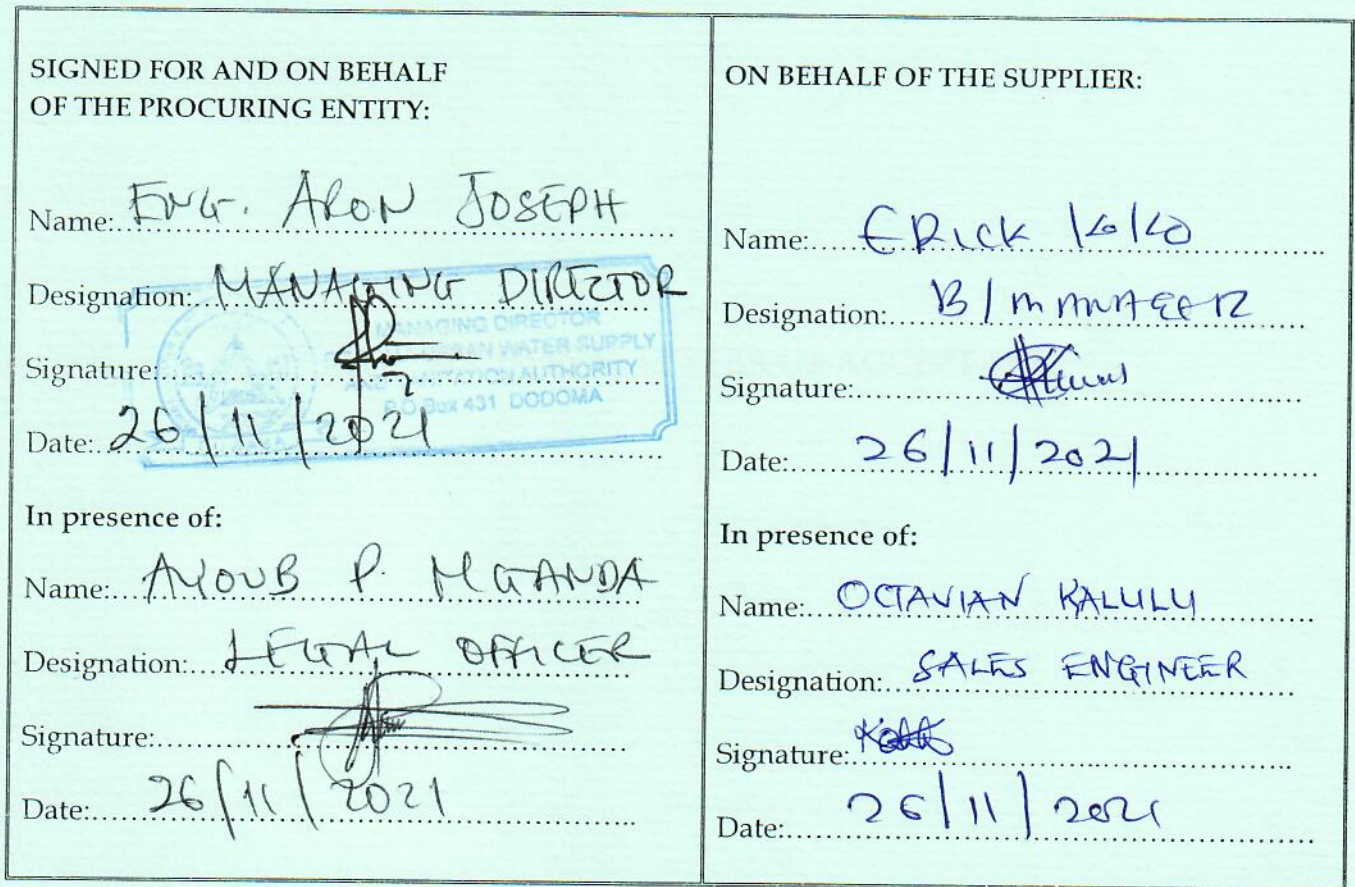 SIGNED FOR AND ON BEHALF
OF THE PROCURING ENTITY:
Name: ENG. ARON JOSEPH
Designation: MANAGING DIRECTOR
MANAGING DIRECTOR
URBAN WATER SUPPLY
Signature:
AND SANITATION AUTHORITY
P.O Box 431 DODOMA
Date: 26/11/2021
In presence of:
Name: AYOUB P. MGANDA
Designation: LEGAL OFFICER
Signature:
Date: 26/11/2021
ON BEHALF OF THE SUPPLIER:
Name: ERICK KOKO
Designation: B/MANAGER
Signature:
Date: 26/11/2021
In presence of:
Name: OCTAVIAN KALULU
Designation: SALES ENGINEER
Signature:
Date: 26/11/2021